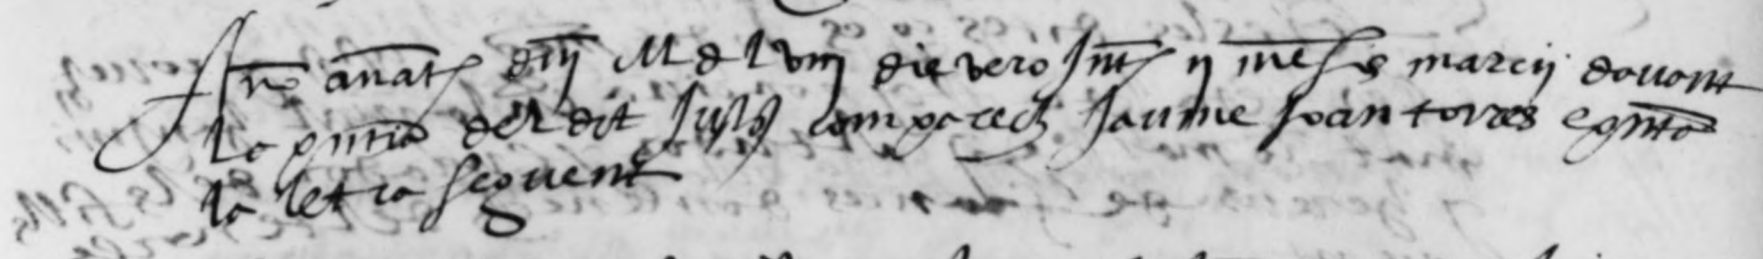 Anno a nat dnj M d lviij die vero Int ij mēsis marcij dauant
la pntia del dit Justj comparech Jaume Joan torres e pnta
la letra seguent